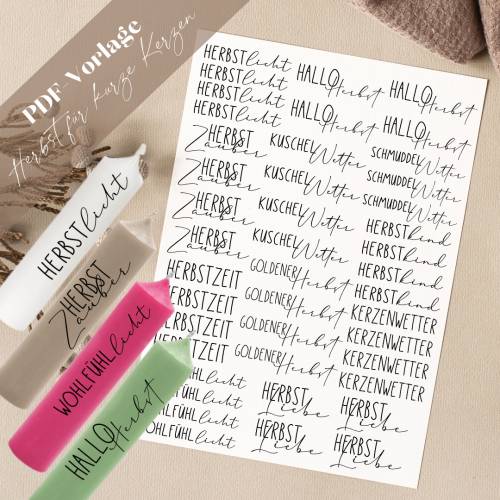 PDF-Vorlage
Herbst für kurze Kerzen
HERBSTlicht
HERBSTlicht
HERBSTlicht
HERBSTlicht
HALLO Herbst
HALLO Herbst
HALLO Herbst
HALLO Herbst
HERBST Zauber
HERBST Zauber
HERBST Zauber
HERBST Zauber
KUSCHEL Wetter
KUSCHEL Wetter
KUSCHEL Wetter
KUSCHEL Wetter
SCHMUDDEL Wetter
SCHMUDDEL Wetter
SCHMUDDEL Wetter
HERBSTkind
HERBSTkind
HERBSTkind
HERBSTkind
HERBSTZEIT
HERBSTZEIT
HERBSTZEIT
HERBSTZEIT
GOLDENER Herbst
GOLDENER Herbst
GOLDENER Herbst
GOLDENER Herbst
KERZENWETTER
KERZENWETTER
KERZENWETTER
KERZENWETTER
WOHLFÜHLlicht
WOHLFÜHLlicht
WOHLFÜHLlicht
HERBST Liebe
HERBST Liebe
HERBST Liebe
HERBST Liebe
HERBSTlicht
HERBST Zauber
WOHLFÜHLlicht
HALLO Herbst